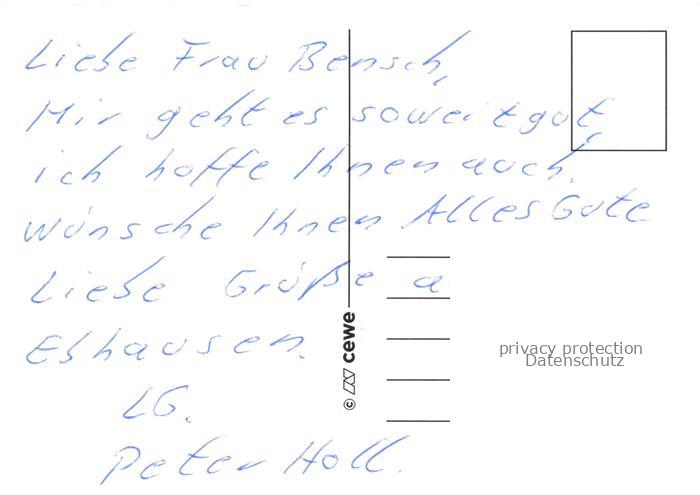 Liebe Frau Bensch,
Mir geht es soweit gut,
ich hoffe Ihnen auch.
wünsche Ihnen Alles Gute
Liebe Grüße a
Ebhausen.
LG.
Peter Holl.
© cewe
privacy protection
Datenschutz